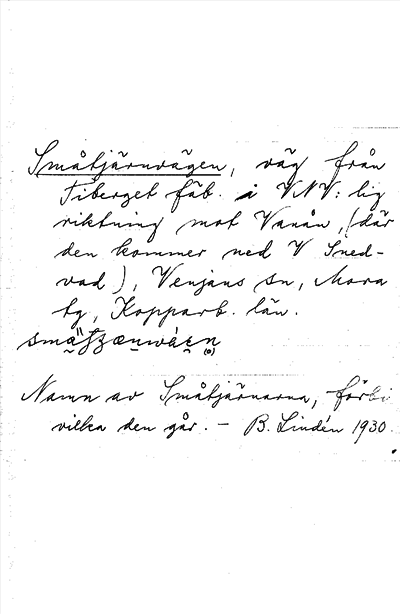 Småtjärnvägen, väg från
Tiberget fäb. i VNV:lig
riktning mot Vanån, (där
den kommer ned V Sned-
vad), Venjans sn, Mora
tg, Kopparb. län.
Namn av Småtjärnarna, förbi
vilka den går. – B. Lindén 1930.